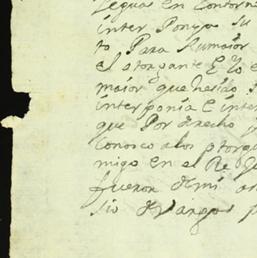 Leguas en Contorno
inter Ponga su
to Para su maior
el otorgante E yo e
maior que hesido
interponia E inter
que Por derecho
Conosco a los otorga
migo en el Re
fueron
sio de Vargas